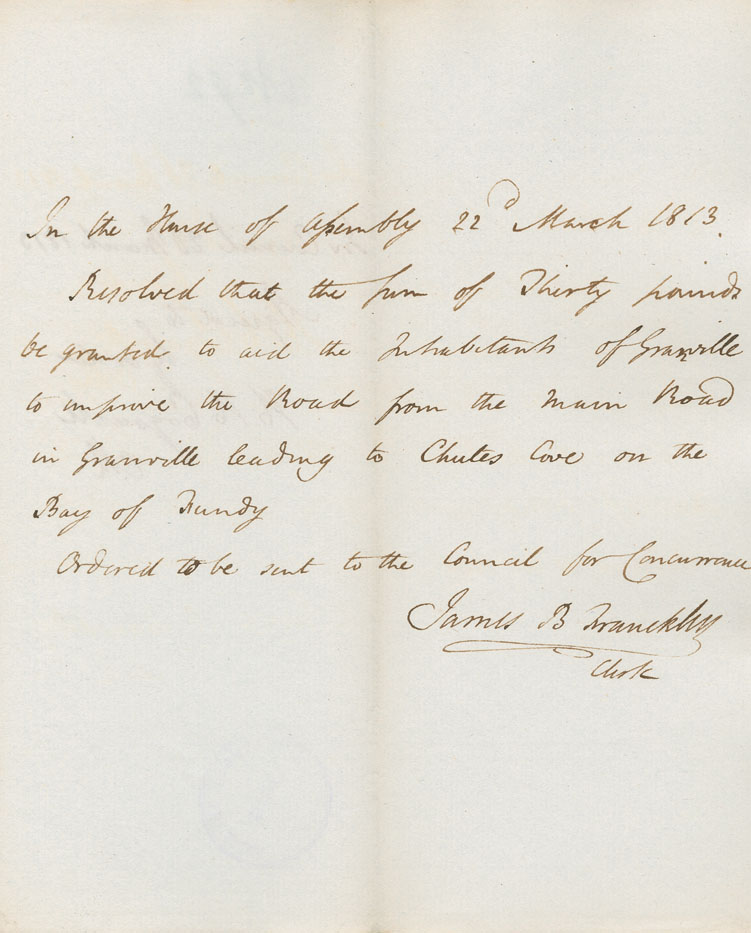 In the House of Assembly 22d March 1813.
Resolved that the sum of Thirty pounds
be granted to aid the Inhabitants of Granville
to improve the Road from the main Road
in Granville leading to Chutes Cove on the
Bay of Fundy
Ordered to be sent to the Council for Concurrence
James B Franckliyn
Clerk